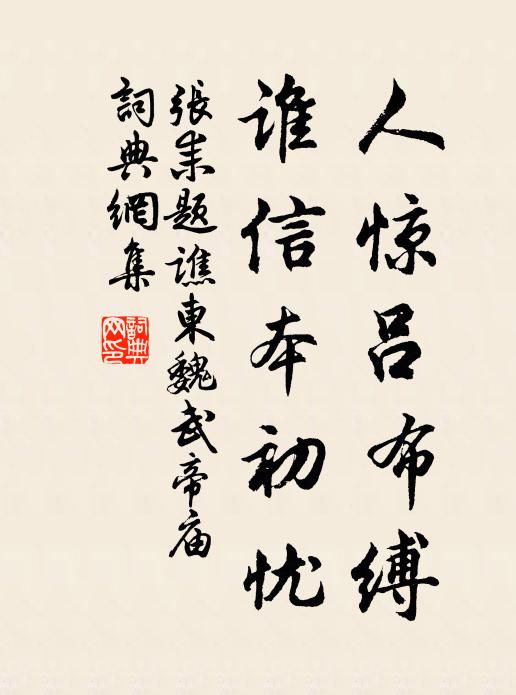 人惊吕布缚
谁信本初忧
張耒题譙東魏武帝庙
詞典網集
詞典网印